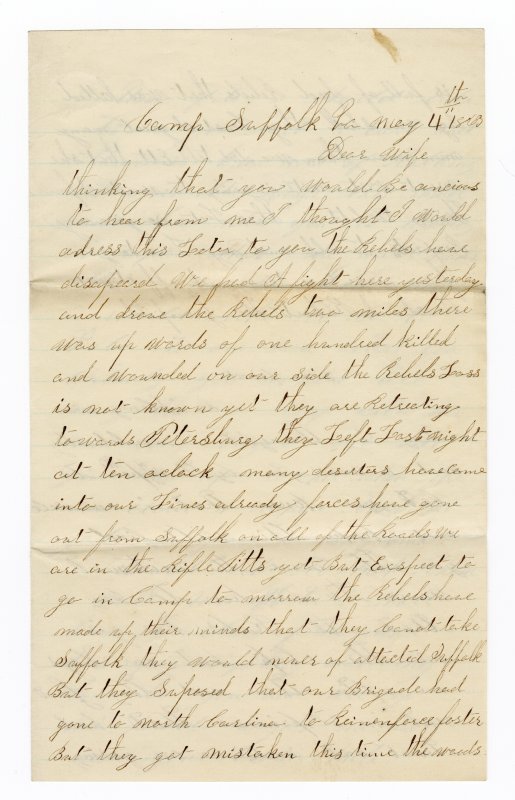 Camp Suffolk Va May 4th 1863
Dear Wife
thinking that you would be ancious
to hear from me I thought I would
adress this Leter to you the Rebels have
disapeard We had A fight here yesterday
and drove the Rebels two miles there
was up words of one hundred killed
and wounded on our side the Rebels Loss
is not known yet they are Retreating
towards Petersburg they Left Last night
at ten oclock many deserters have come
into our Lines already forces have gone
out from Suffolk on all of the Roads We
are in the Rifle Pitts yet But Exspect to
go in Camp to morrow the Rebels have
made up their minds that they Canot take
Suffolk they would never of attacted Suffolk
But they Suposed that our Brigade had
gone to North Carlina to Reinenforce foster
But they got mistaken this time the woods